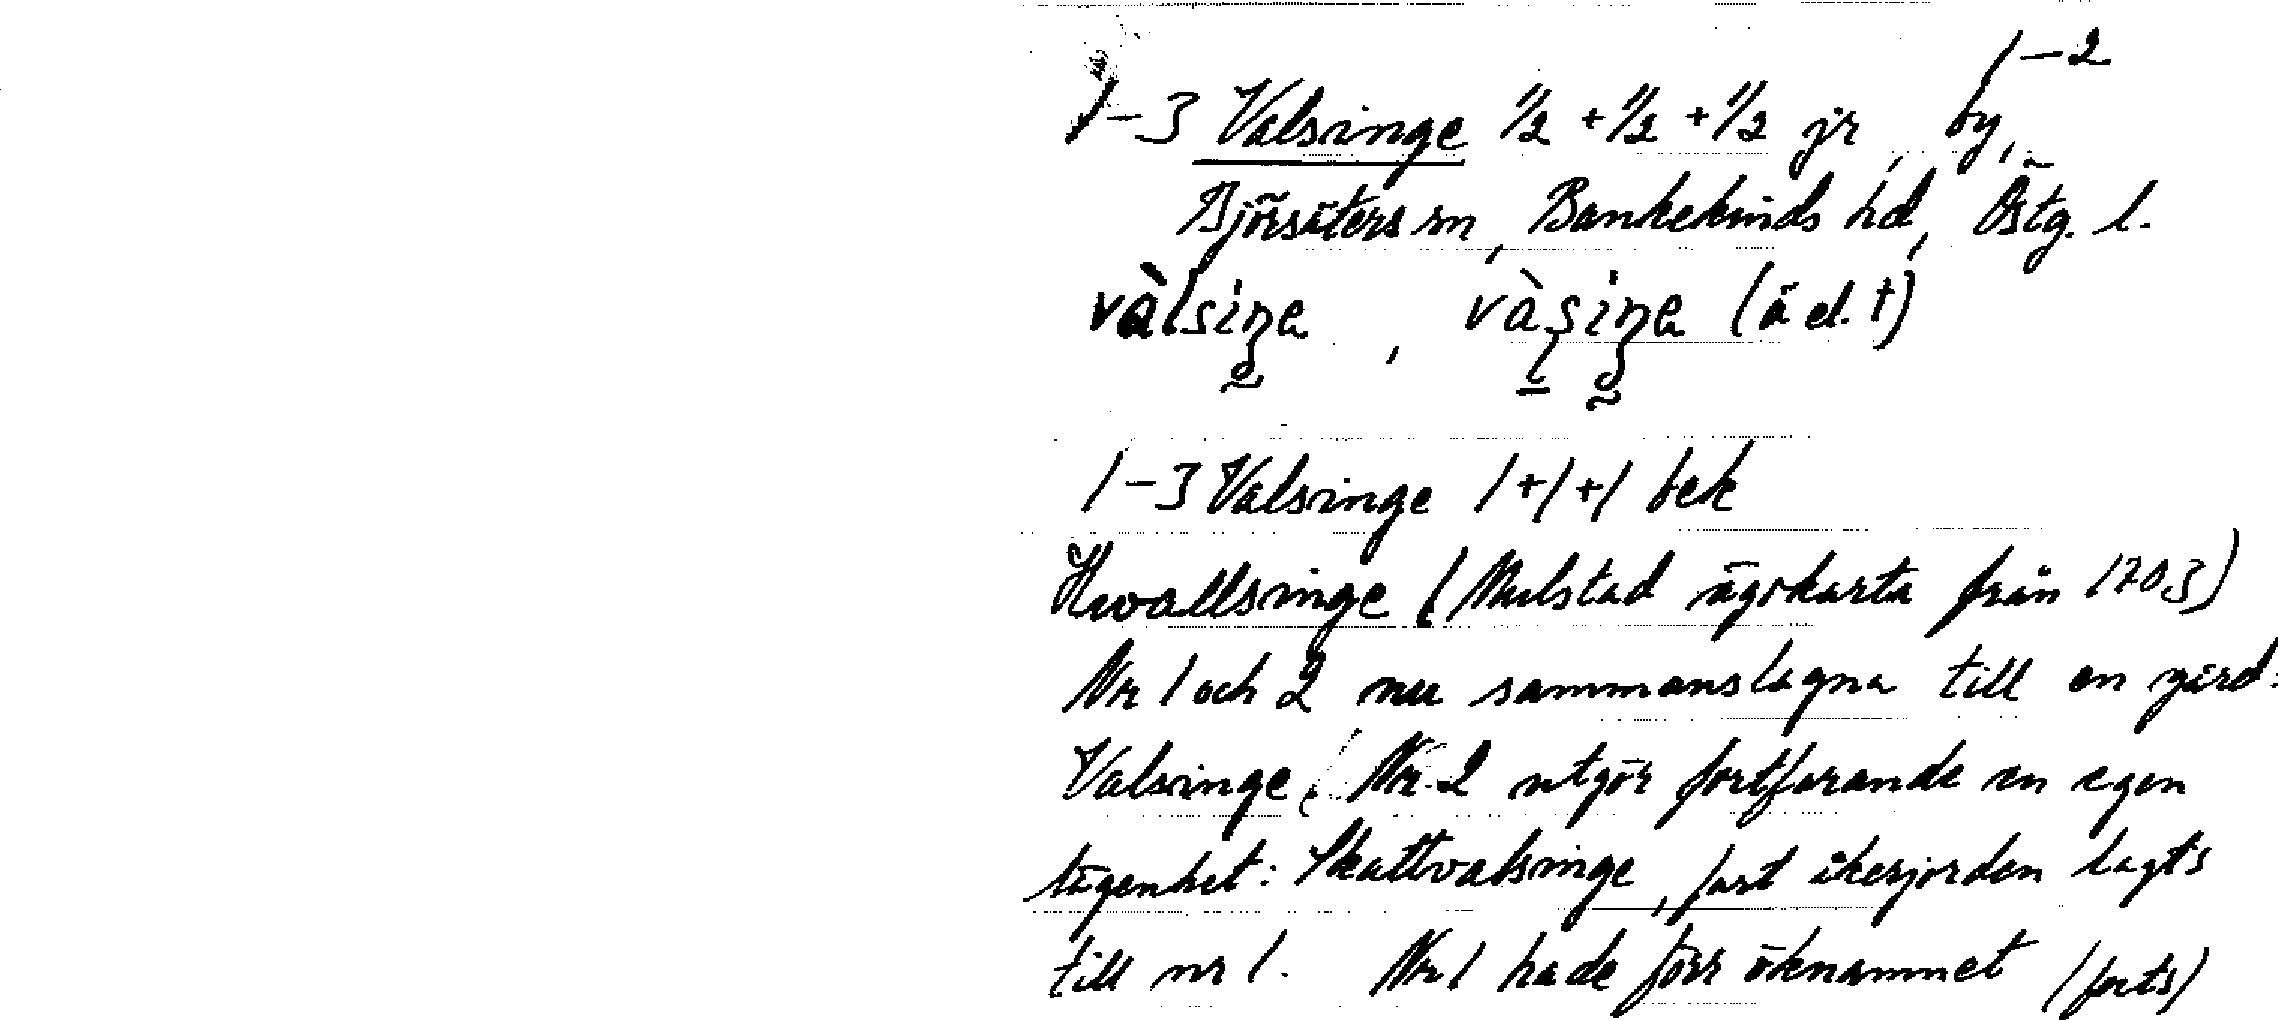 1-2
1-3 Valsinge 1/2 + 1/2 + 1/2 jr, by,
Björsäters sn, Bankekinds hd, Östg. l.
vàlsiŋe, vàșiŋe (ä el. t)
1-3 Valsinge 1+1+1 bek
Hwallsinge (Mulstad ägokarta från 1703)
Nr 1 och 2 nu sammanslagna till en gård:
Valsinge. Nr 2 utgör fortfarande en egen
lägenhet: Skattvalsinge, fast åkerjorden lagts
till nr 1. Nr 1 hade förr öknamnet (forts)